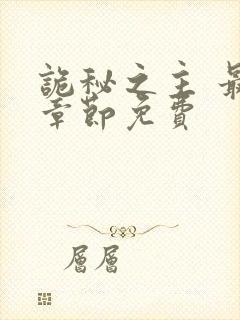 詭秘之主 最
章節免費
層層